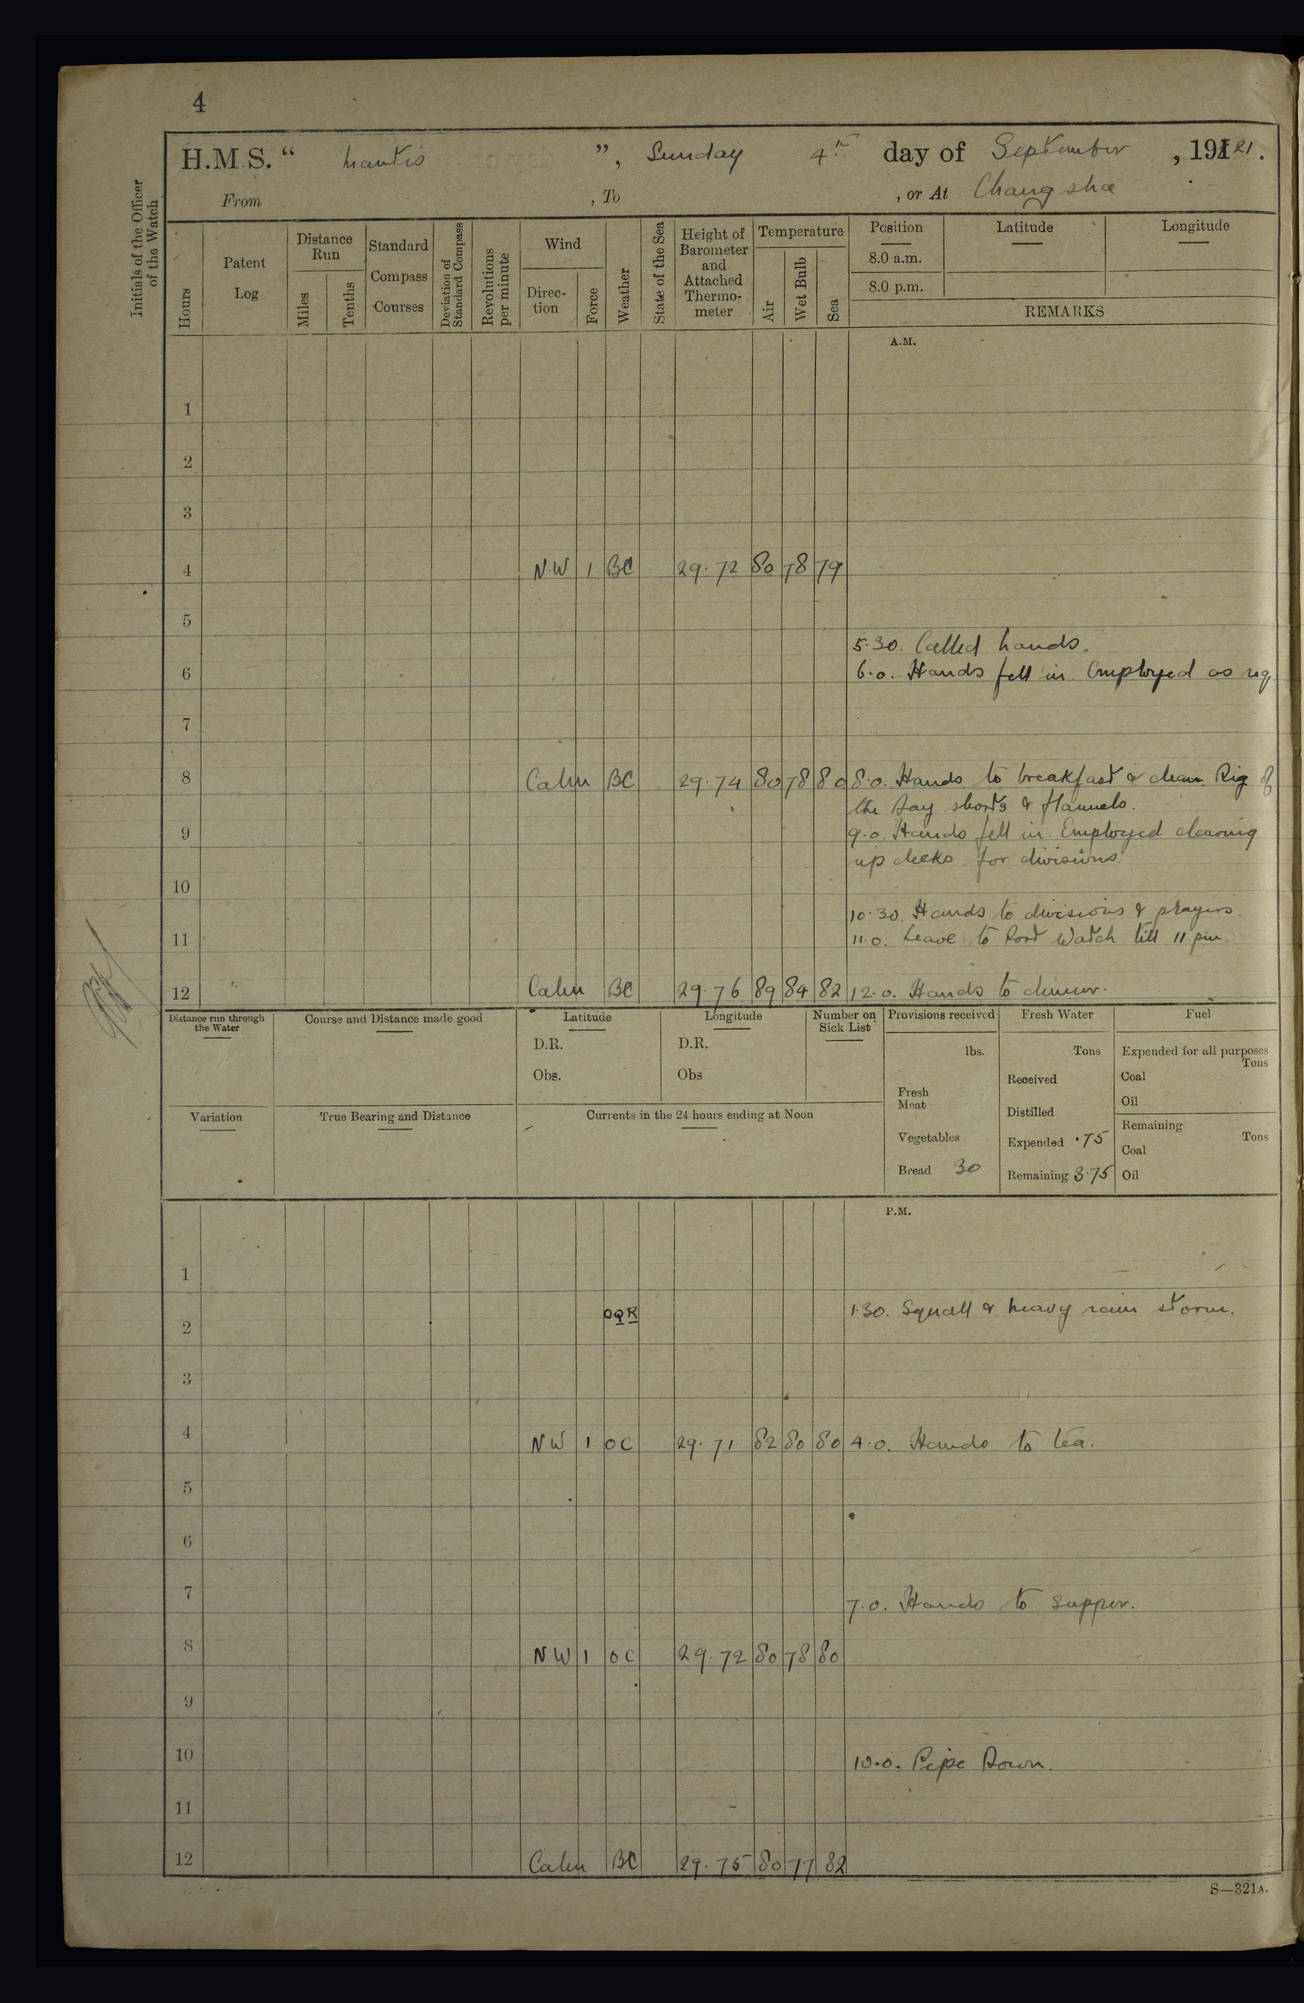 4
H.M.S. “ Mantis ”, Sunday 4th day of September, 1921.
From , To , or At Changsha
Initials of the Officer of the Watch
Hours
Patent Log
Distance Run
Miles
Tenths
Standard Compass Courses
Deviation of Standard Compass
Revolutions per minute
Wind
Direction
Force
Weather
State of the Sea
Height of Barometer and Attached Thermometer
Temperature
Air
Wet Bulb
Sea
Position
8.0 a.m.
8.0 p.m.
Latitude
Longitude
REMARKS
A.M.
1
2
3
4 N.W 1 BC 29.72 80 78 79
5
5.30. Called hands.
6 6.0. Hands fell in. Employed as req
7
8 Calm BC 29.74 80 78 80 8.0. Hands to breakfast & clean. Rig of
the day shorts & flannels.
9 9.0. Hands fell in. Employed clearing
up decks for divisions.
10
10.30. Hands to divisions & prayers.
11 11.0. Leave to Port Watch till 11 pm.
12 Calm BC 29.76 89 84 82 12.0. Hands to dinner.
Distance run through the Water
Course and Distance made good
Latitude
D.R.
Obs.
Longitude
D.R.
Obs
Number on Sick List
Provisions received
lbs.
Fresh Meat
Vegetables
Bread 30
Fresh Water
Tons
Received
Distilled
Expended .75
Remaining 3.75
Fuel
Expended for all purposes
Tons
Coal
Oil
Remaining
Tons
Coal
Oil
Variation
True Bearing and Distance
Currents in the 24 hours ending at Noon
P.M.
1
OQR 1.30. Squall & heavy rain storm.
2
3
4 NW 1 OC 29.71 82 80 80 4.0. Hands to tea.
5
6
7 7.0. Hands to supper.
8 NW 1 OC 29.72 80 78 80
9
10 10.0. Pipe Down.
11
12 Calm BC 29.75 80 77 82
S—321A.